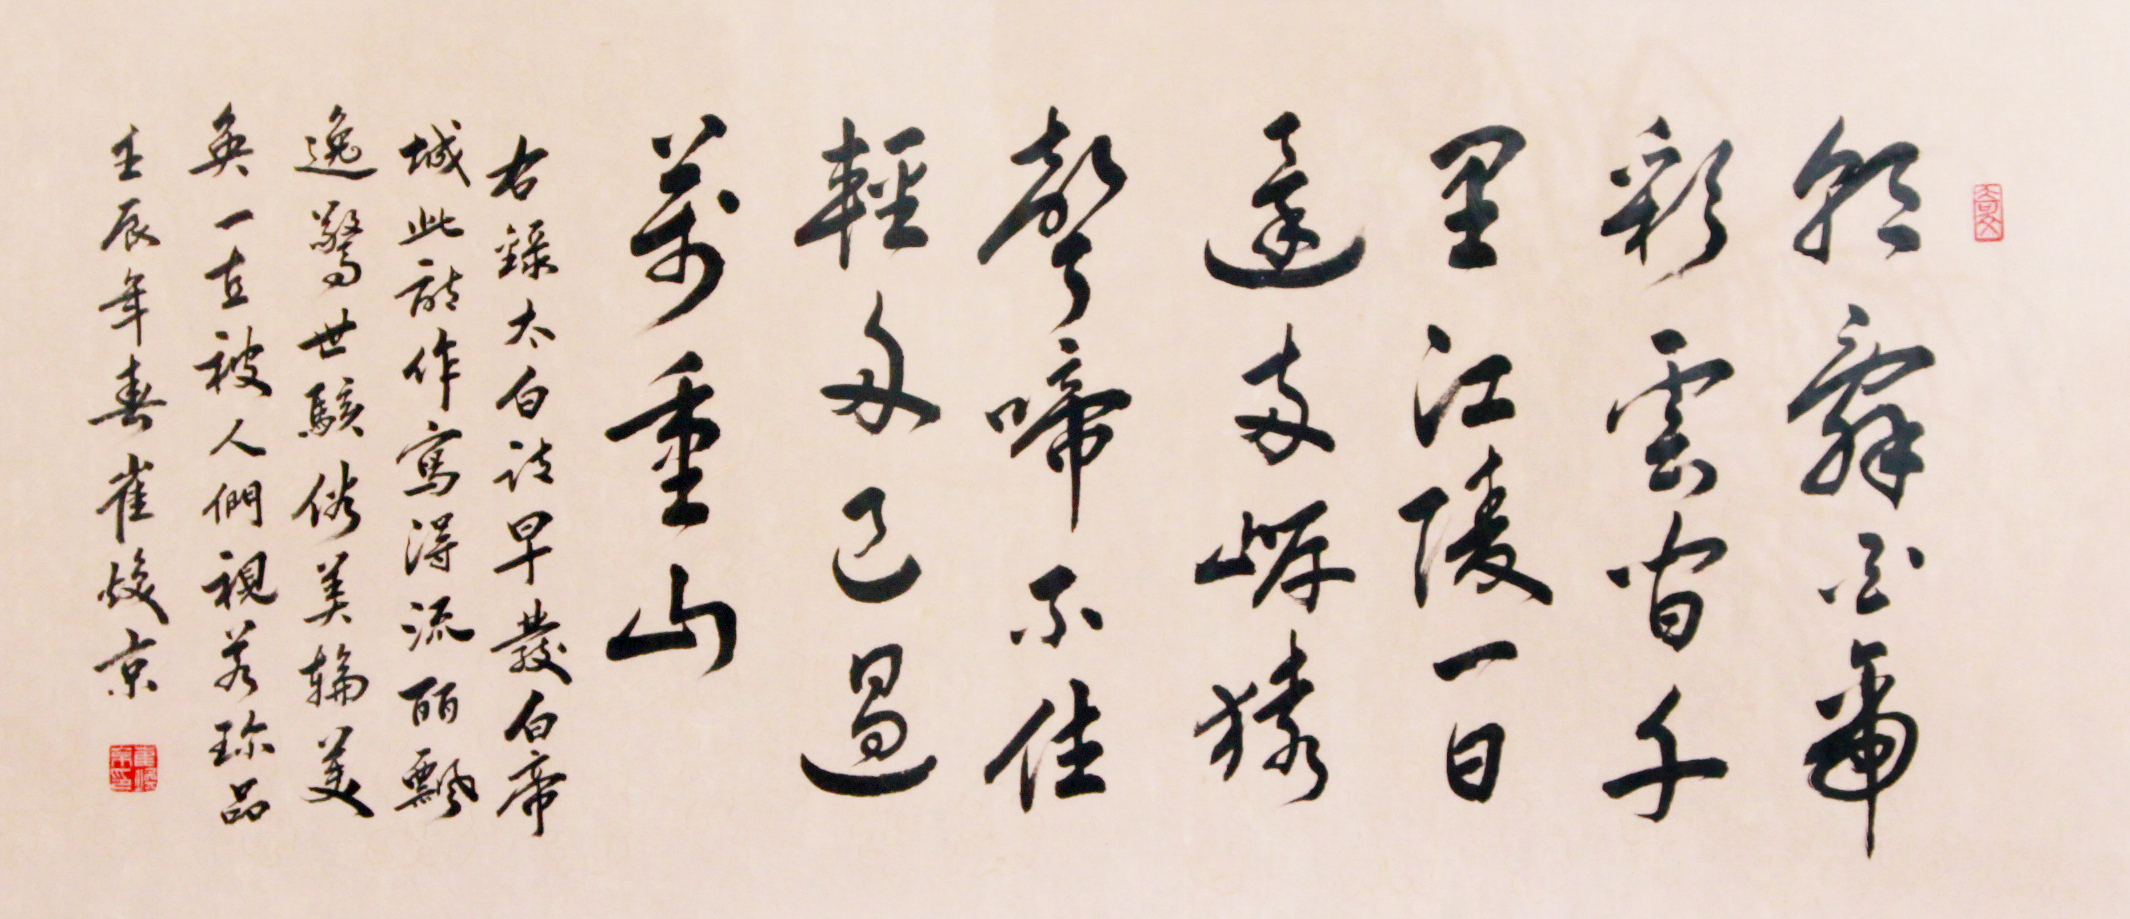 朝辭白帝
彩雲間千
里江陵一日
還兩岸猿
聲啼不住
輕舟已過
萬重山
右錄太白詩早發白帝
城此詩作寫得流丽飄
逸驚世駭俗美輪美
奐一直被人們視若珍品
壬辰年春崔京